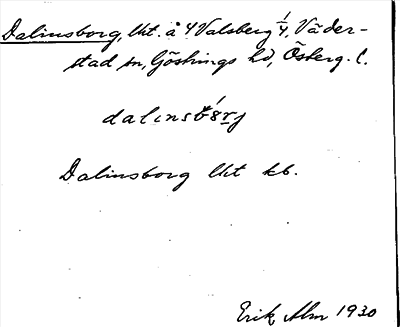 Dalinsborg, lht. å 4 Valsberg 1/4, Väder-
stad sn, Göstrings hd, Österg. l.
dalɩnsbórj
Dalinsborg lht kb.
Erik Alm 1930